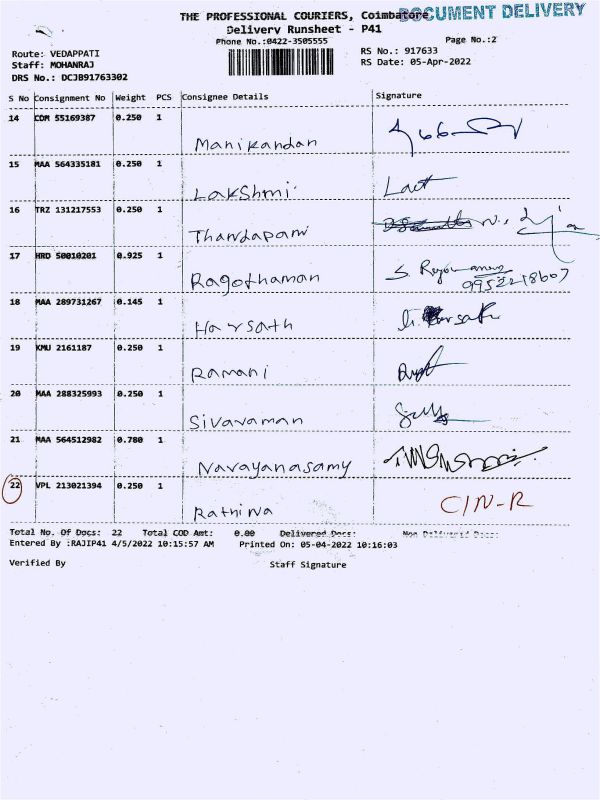 THE PROFESSIONAL COURIERS, Coimbatore
DOCUMENT DELIVERY
Delivery Runsheet - P41
Phone No.:0422-3505555
Page No.:2
Route: VEDAPPATI
RS No.: 917633
Staff: MOHANRAJ
RS Date: 05-Apr-2022
DRS No.: DCJB91763302
S No Consignment No Weight PCS Consignee Details Signature
14 COM 55169387 0.250 1
Manikandan
15 MAA 564335181 0.250 1
Lakshmi
16 TRZ 131217553 0.250 1
Thandapani
17 HRD 50010201 0.925 1
Ragothaman
9952218607
18 MAA 289731267 0.145 1
Harsath
19 KMU 2161187 0.250 1
Ramani
20 MAA 288325993 0.250 1
Sivaraman
21 MAA 564512982 0.780 1
Narayanasamy
22 VPL 213021394 0.250 1
C/N-R
Total No. Of Docs: 22 Total COD Amt: 0.00 Delivered Docs: Non Delivered Docs:
Entered By :RAJIP41 4/5/2022 10:15:57 AM Printed On: 05-04-2022 10:16:03
Verified By Staff Signature